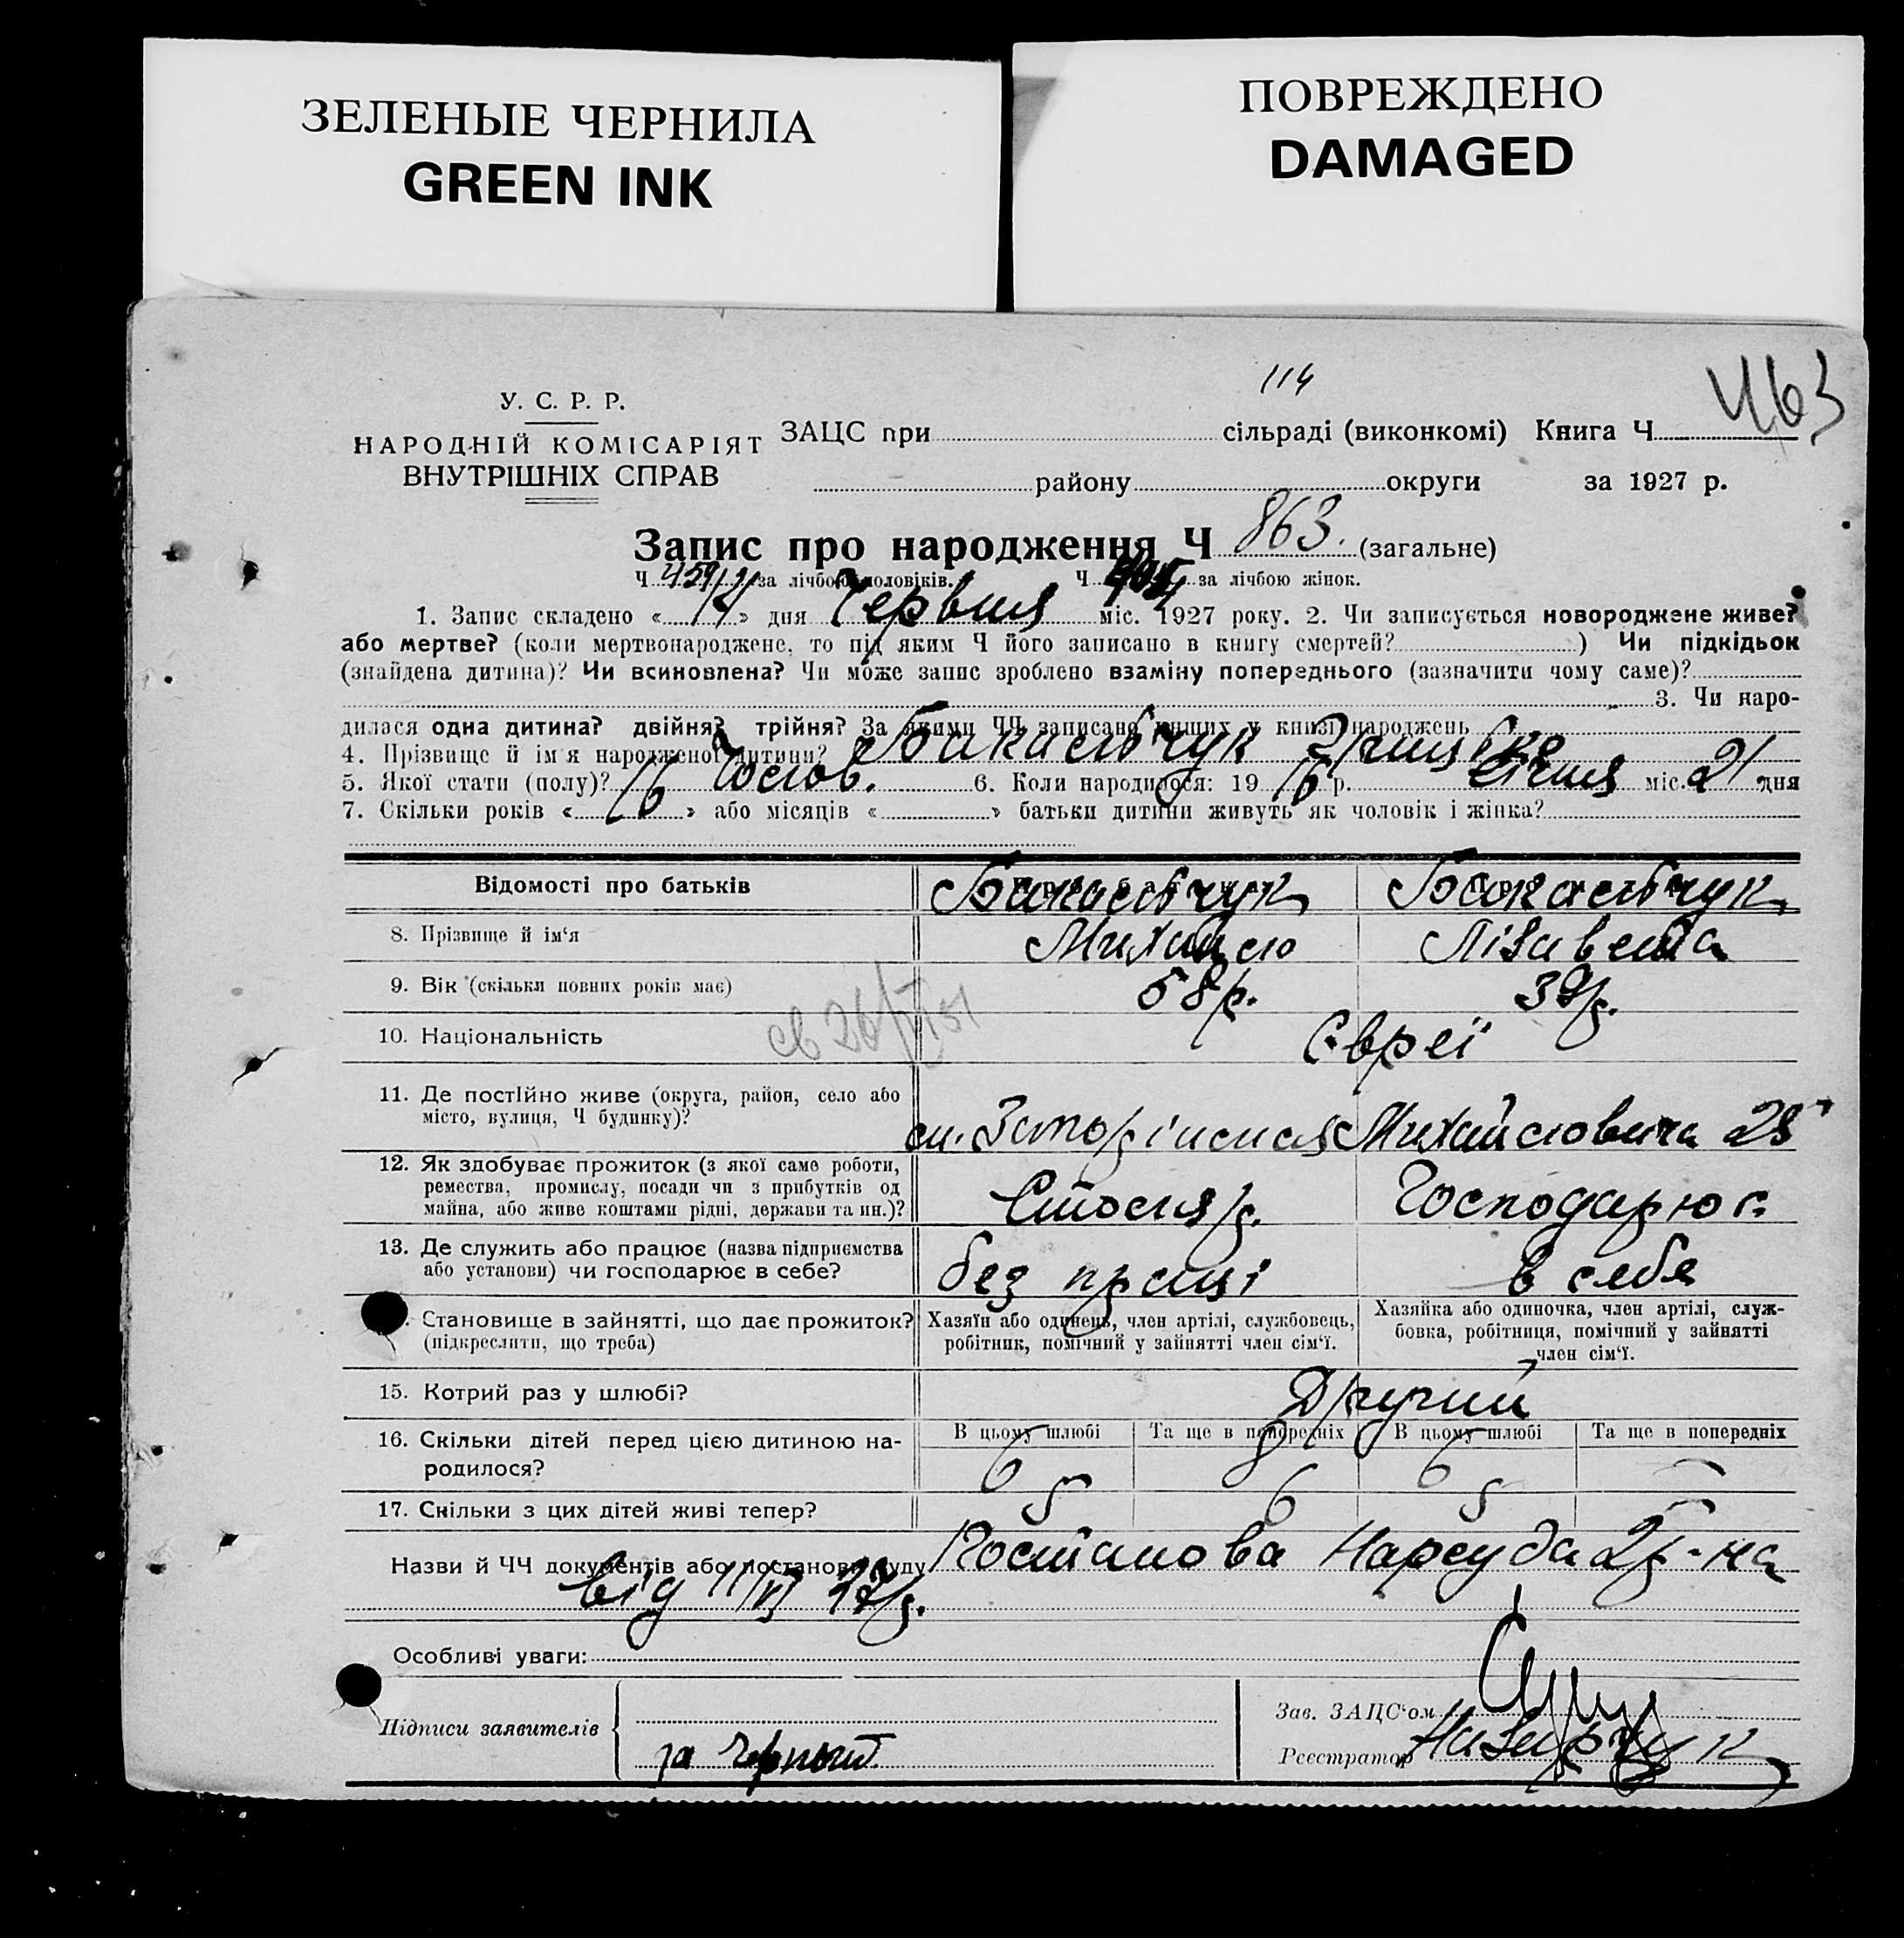 ЗЕЛЕНЫЕ ЧЕРНИЛА
GREEN INK
ПОВРЕЖДЕНО
DAMAGED
114
463
У. С. Р. Р.
НАРОДНІЙ КОМІСАРІЯТ
ВНУТРІШНІХ СПРАВ
ЗАЦС при сільраді (виконкомі) Книга Ч
району округи за 1927 р.
Запис про народження Ч 863. (загальне)
Ч 459 за лічбою чоловіків. Ч за лічбою жінок.
1. Запис складено « » дня Червня міс. 1927 року. 2. Чи записується новороджене живе?
або мертве? (коли мертвонароджене, то під яким Ч його записано в книгу смертей? ) Чи підкідьок
(знайдена дитина)? Чи всиновлена? Чи може запис зроблено взаміну попереднього (зазначити чому саме)?
3. Чи наро-
дилася одна дитина? двійня? трійня? За якими ЧЧ записано инших у книзі народжень
4. Прізвище й ім'я народженої дитини?
5. Якої стати (полу)? 6. Коли народилося: 19 р. Січня міс. 21 дня
7. Скільки років « 16 » або місяців « » батьки дитини живуть як чоловік і жінка?
Відомості про батьків
8. Прізвище й ім'я Лізавета
9. Вік (скільки повних років має) 58р. 39р.
10. Національність Євреї
11. Де постійно живе (округа, район, село або
місто, вулиця, Ч будинку)?
12. Як здобуває прожиток (з якої само роботи,
ремества, промислу, посади чи з прибутків од
майна, або живе коштами рідні, держави та ин.)? Столяр. Господарює
13. Де служить або працює (назва підприємства
або установи) чи господарює в себе? без праці в себе
Становище в зайнятті, що дає прожиток?
(підкреслити, що треба)
Хазяїн або одинець, член артілі, службовець,
робітник, помічний у зайнятті член сім'ї.
Хазяйка або одиночка, член артілі, служ-
бовка, робітниця, помічний у зайнятті
член сім'ї.
15. Котрий раз у шлюбі? Другий
16. Скільки дітей перед цією дитиною на-
родилося?
В цьому шлюбі Та ще в попередніх В цьому шлюбі Та ще в попередніх
6 8 6 –
17. Скільки з цих дітей живі тепер? 5 6 5 –
Назви й ЧЧ документів або постанови суду Постанова Нарсуда 2р-на
від 11/VI 27р.
Особливі уваги:
Підписи заявителів
Зав. ЗАЦС'ом
Реєстратор